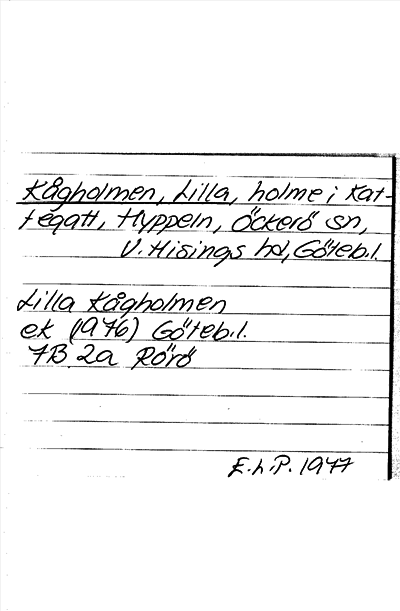 Kågholmen, Lilla, holme i Kat-
tegatt, Hyppeln, Öckerö sn,
V. Hisings hd, Göteb. l.
Lilla Kågholmen
ek (1976) Göteb. l.
7B 2a Rörö
E. L. P. 1977